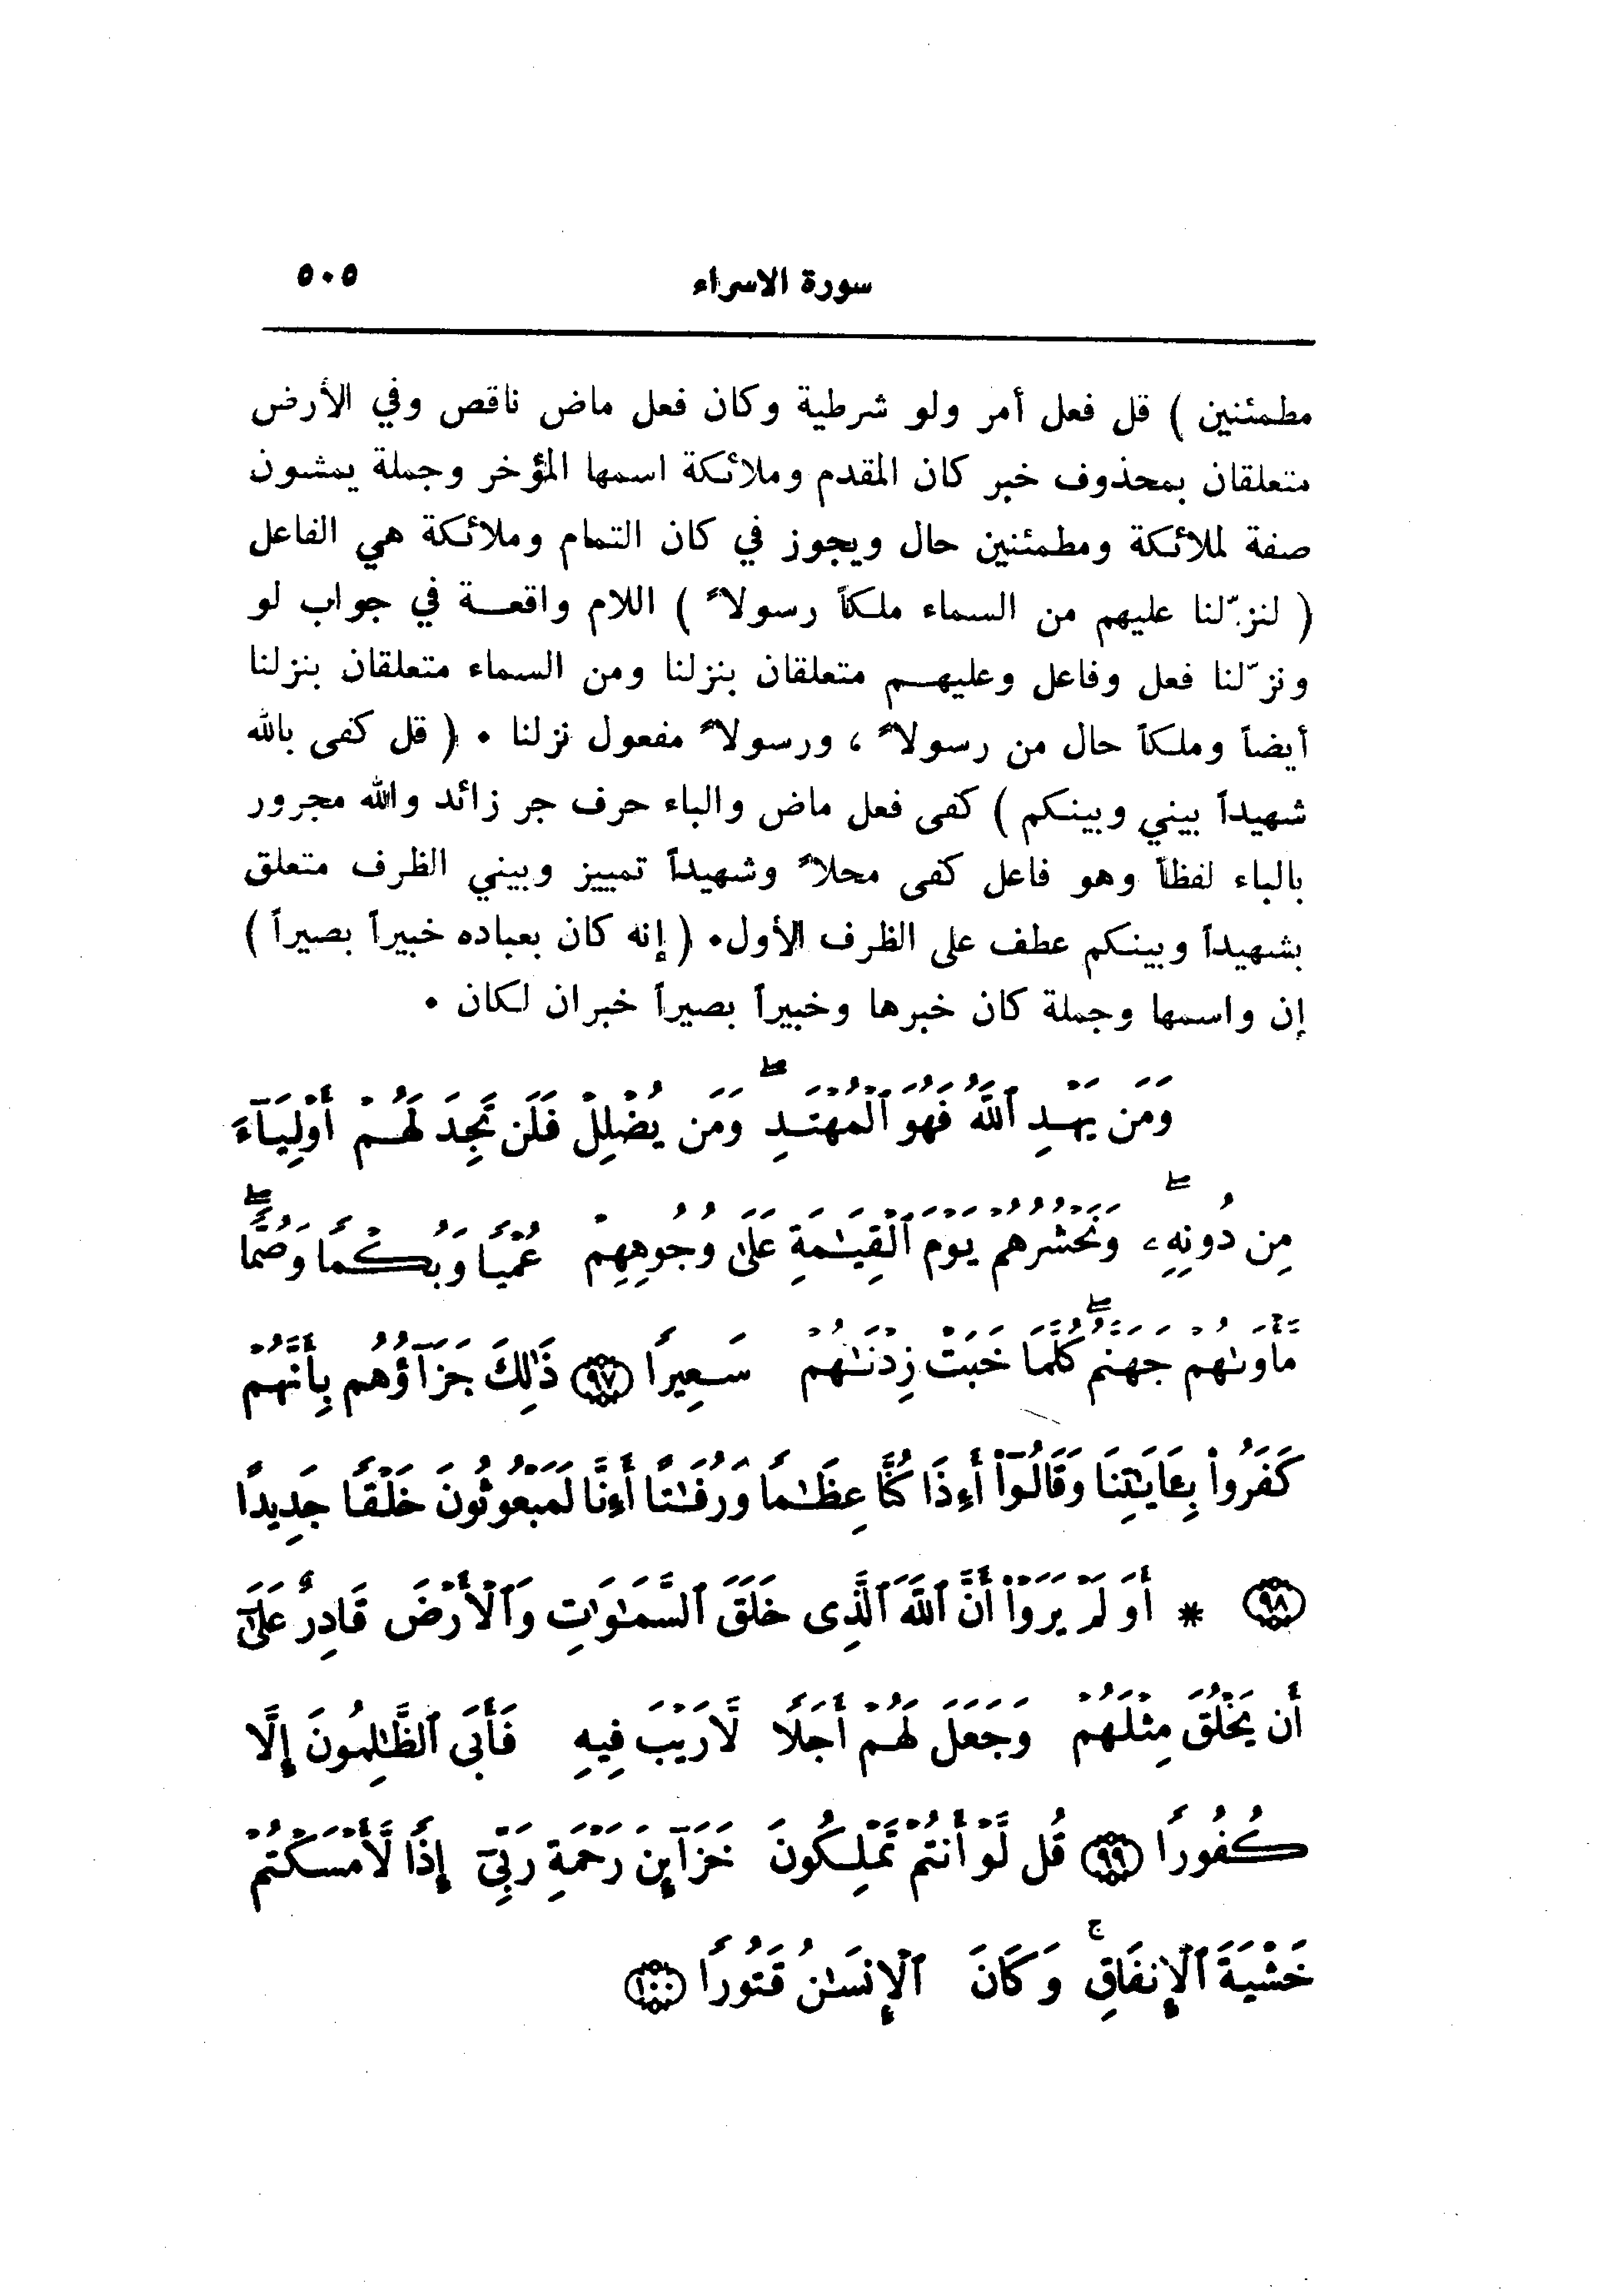 سورة الاسراء ٥٠٥
مطمئنين ) قل فعل أمر ولو شرطية وكان فعل ماض ناقص وفي الأرض
متعلقان بمحذوف خبر كان المقدم وملائكة اسمها المؤخر وجملة يمشون
صفة لملائكة ومطمئنين حال ويجوز في كان التمام وملائكة هي الفاعل
( لنزّلنا عليهم من السماء ملكاً رسولاً ) اللام واقعة في جواب لو
ونزّلنا فعل وفاعل وعليهم متعلقان بنزلنا ومن السماء متعلقان بنزلنا
أيضاً وملكاً حال من رسولاً ، ورسولاً مفعول نزلنا . ( قل كفى بالله
شهيداً بيني وبينكم ) كفى فعل ماض والباء حرف جر زائد والله مجرور
بالباء لفظاً وهو فاعل كفى محلاً وشهيداً تمييز وبيني الظرف متعلق
بشهيداً وبينكم عطف على الظرف الأول. ( إنه كان بعباده خبيراً بصيراً )
إن واسمها وجملة كان خبرها وخبيراً بصيراً خبران لكان .
وَمَن يَهْدِ ٱللَّهُ فَهُوَ ٱلْمُهْتَدِ ۖ وَمَن يُضْلِلْ فَلَن تَجِدَ لَهُمْ أَوْلِيَآءَ
مِن دُونِهِۦ ۖ وَنَحْشُرُهُمْ يَوْمَ ٱلْقِيَـٰمَةِ عَلَىٰ وُجُوهِهِمْ عُمْيًا وَبُكْمًا وَصُمًّا ۖ
مَّأْوَىٰهُمْ جَهَنَّمُ ۖ كُلَّمَا خَبَتْ زِدْنَـٰهُمْ سَعِيرًا ﴿٩٧﴾ ذَٰلِكَ جَزَآؤُهُم بِأَنَّهُمْ
كَفَرُوا۟ بِـَٔايَـٰتِنَا وَقَالُوٓا۟ أَءِذَا كُنَّا عِظَـٰمًا وَرُفَـٰتًا أَءِنَّا لَمَبْعُوثُونَ خَلْقًا جَدِيدًا
﴿٩٨﴾ * أَوَلَمْ يَرَوْا۟ أَنَّ ٱللَّهَ ٱلَّذِى خَلَقَ ٱلسَّمَـٰوَٰتِ وَٱلْأَرْضَ قَادِرٌ عَلَىٰٓ
أَن يَخْلُقَ مِثْلَهُمْ وَجَعَلَ لَهُمْ أَجَلًا لَّا رَيْبَ فِيهِ فَأَبَى ٱلظَّـٰلِمُونَ إِلَّا
كُفُورًا ﴿٩٩﴾ قُل لَّوْ أَنتُمْ تَمْلِكُونَ خَزَآئِنَ رَحْمَةِ رَبِّىٓ إِذًا لَّأَمْسَكْتُمْ
خَشْيَةَ ٱلْإِنفَاقِ ۚ وَكَانَ ٱلْإِنسَـٰنُ قَتُورًا ﴿١٠٠﴾